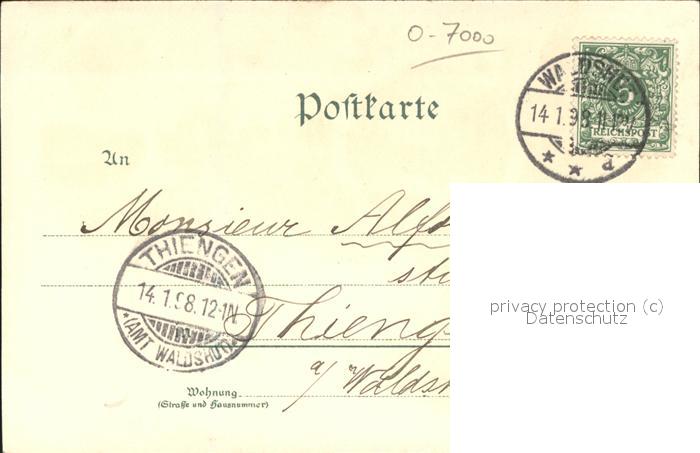 O-7000
Postkarte
5
REICHSPOST
14 1.98.11-12V
a
An
Monsieur
THIENGEN
14.1.98.12-1N
*(AMT WALDSHUT)*
a/
Wohnung
(Straße und Hausnummer)
privacy protection (c)
Datenschutz